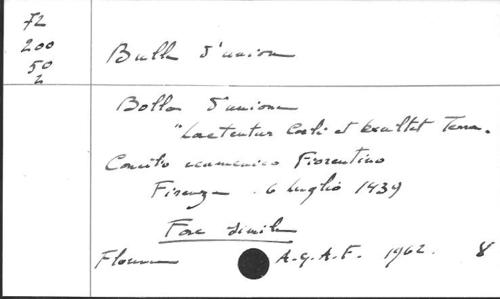 72
200
50
2
Bulla d'unione
Bolla d'unione
"Laetentur Coeli et Exultet Terra.
Concilio ecumenico Fiorentino
Firenze. 6 Luglio 1439
Fac simile
A.G.A.F. 1962. 8